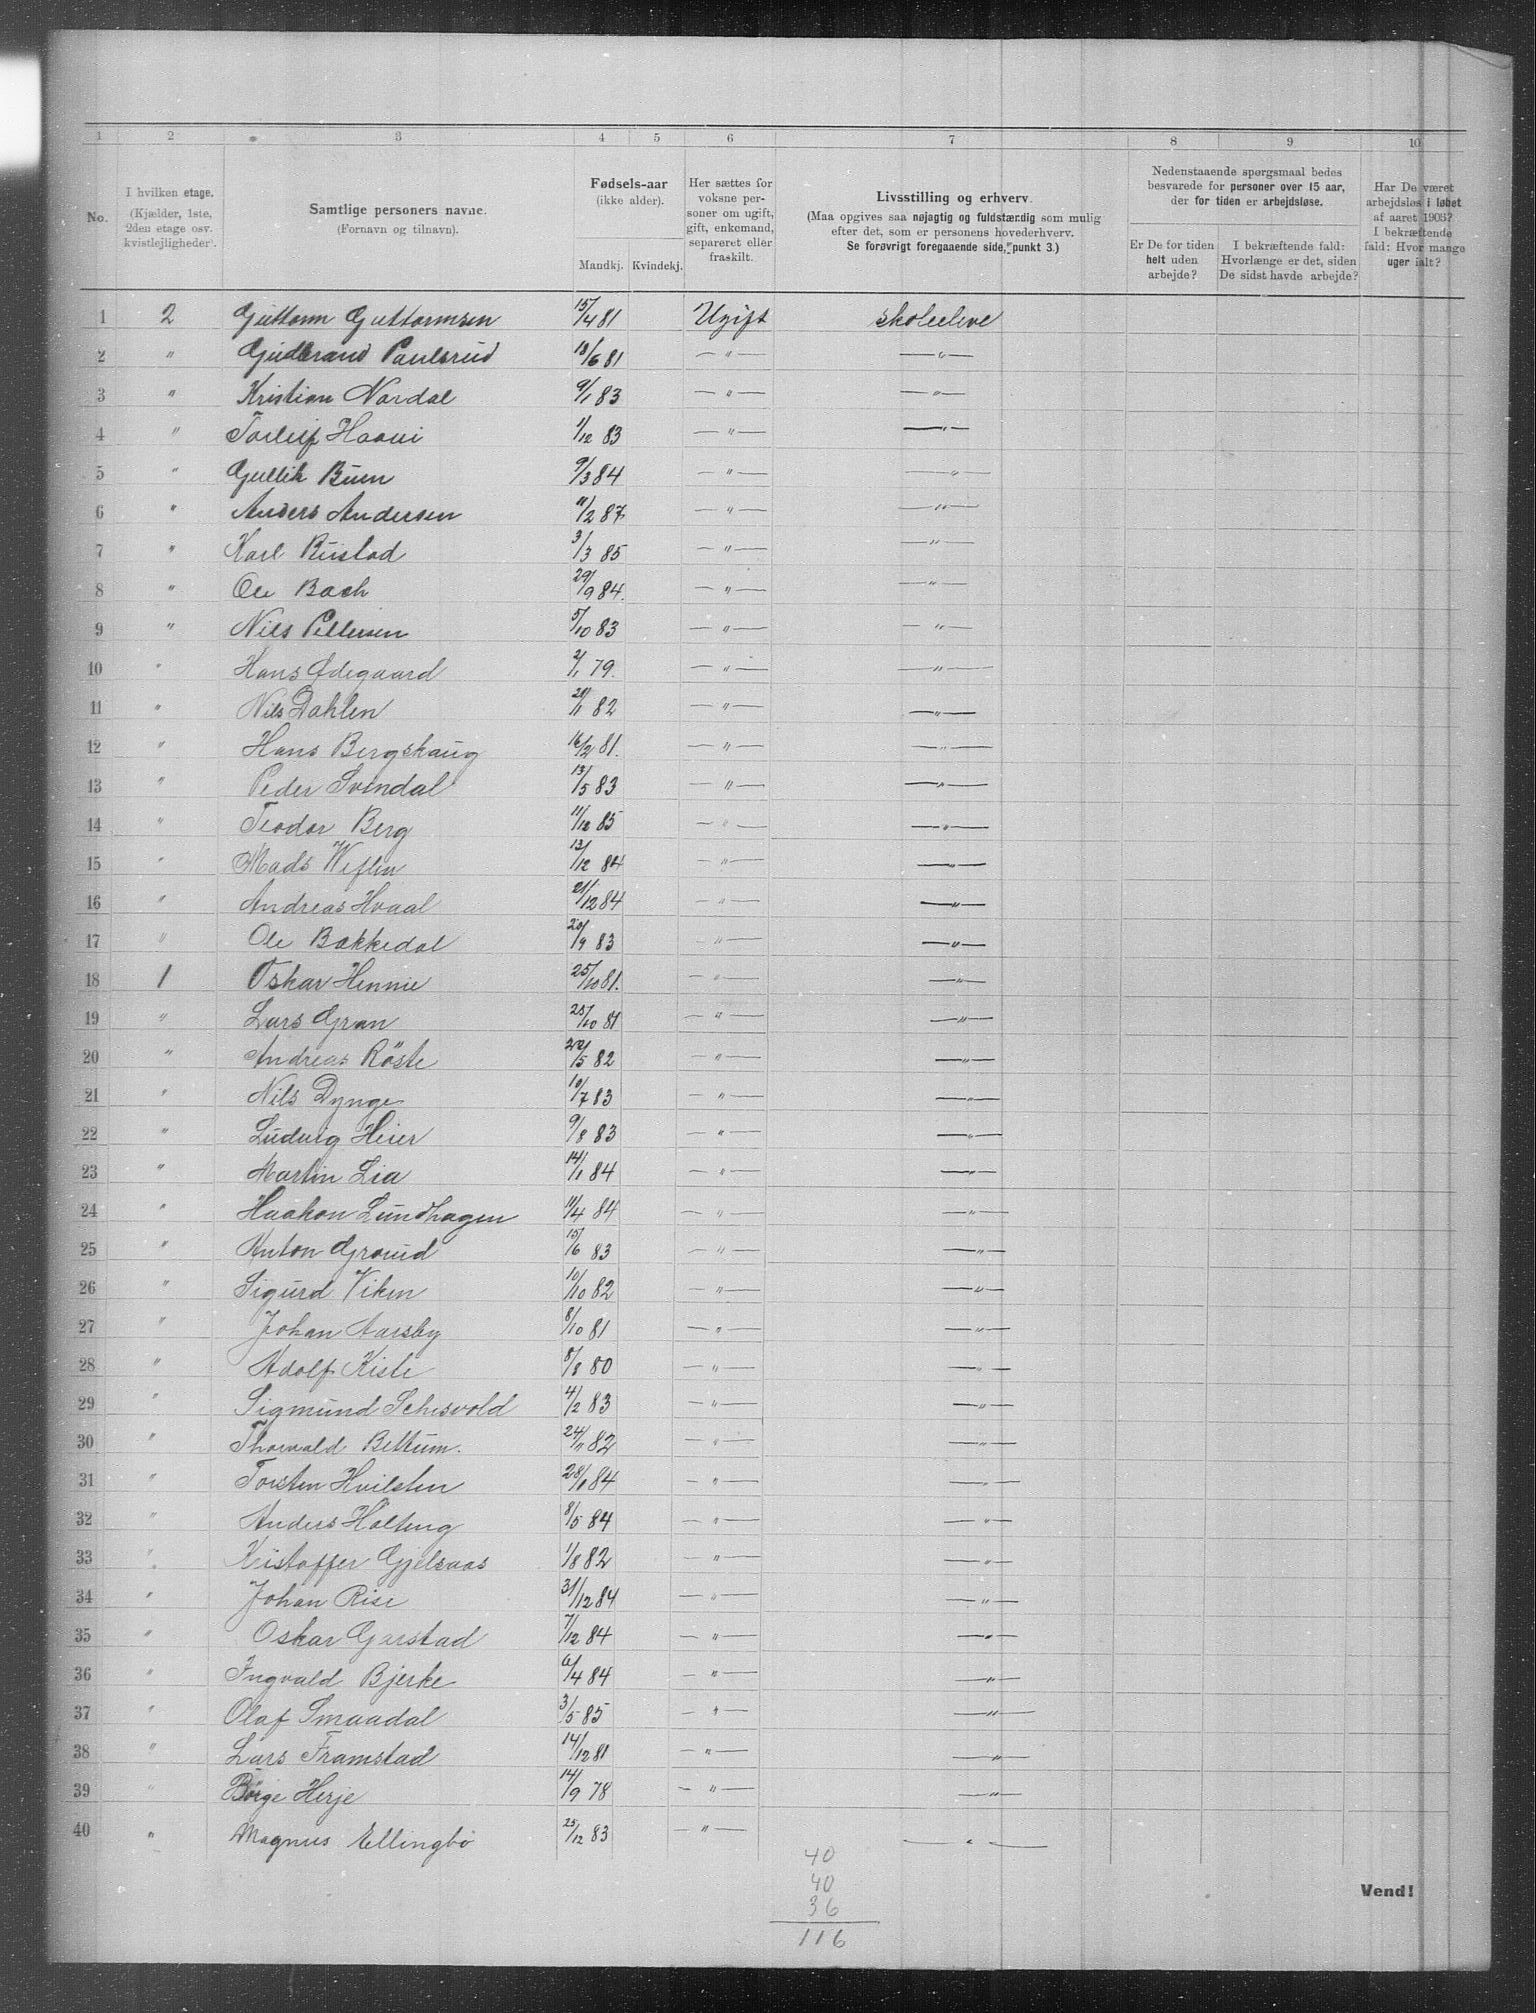 1 2 3 4 5 6 7 8 9 10
No.
I hvilken etage. (Kjælder, 1ste, 2den etage osv. kvistlejligheder).
Samtlige personers navne. (Fornavn og tilnavn).
Fødsels-aar (ikke alder). Mandkj. Kvindekj.
Her sættes for voksne personer om ugift, gift, enkemand, separeret eller fraskilt.
Livsstilling og erhverv.
(Maa opgives saa nøjagtig og fuldstærdig som mulig efter det, som er personens hovederhverv.
Se forøvrigt foregaaende side, punkt 3.)
Nedenstaaende spørgsmaal bedes besvarede for personer over 15 aar, der for tiden er arbejdsløse.
Er De for tiden helt uden arbejde?
I bekræftende fald: Hvorlænge er det, siden De sidst havde arbejde?
Har De været arbejdsløs i løbet af aaret 1905? I bekræftende fald: Hvor mange uger ialt?
1 2 Guttorm Guttormsen 15/4 81 Ugift skoleeleve
2 " Gudbrand Paulsrud 18/6 81 — " — — " —
3 " Kristian Nordal 9/1 83 — " — — " —
4 " Torleif Haavi 1/12 83 — " — — " —
5 " Gullik Buen 9/3 84 — " — — " —
6 " Anders Andersen 11/2 87 — " — — " —
7 " Karl Rustad 3/3 85 — " — — " —
8 " Ole Bach 29/9 84. — " — — " —
9 " Nils Pettersen 5/10 83 — " — — " —
10 " Hans Ødegaard 2/1 79. — " — — " —
11 " Nils Dahlen 28/1 82 — " — — " —
12 " Hans Bergshaug 16/2 81. — " — — " —
13 " Peder Svendal 13/5 83 — " — — " —
14 " Teodor Berg 11/12 85 — " — — " —
15 " Mads Weflen 13/12 84 — " — — " —
16 " Andreas Hvaal 21/12 84 — " — — " —
17 " Ole Bakkedal 20/9 83 — " — — " —
18 1 Oskar Hennie 25/10 81. — " — — " —
19 " Lars Gran 25/10 81 — " — — " —
20 " Andreas Röste 20/5 82 — " — — " —
21 " Nils Dynge 10/7 83 — " — — " —
22 " Ludvig Heier 9/8 83 — " — — " —
23 " Martin Lia 14/1 84 — " — — " —
24 " Haakon Lundhagen 11/4 84 — " — — " —
25 " Anton Groud 15/6 83 — " — — " —
26 " Sigurd Viken 10/10 82 — " — — " —
27 " Johan Aarsby 8/10 81 — " — — " —
28 " Adolf Kiste 8/8 80 — " — — " —
29 " Sigmund 4/2 83 — " — — " —
30 " Thorvald Bettum. 24/11 82 — " — — " —
31 " Torsten Hvilsten 28/1 84 — " — — " —
32 " Anders Holteng 8/5 84 — " — — " —
33 " Kristoffer Gjelsaas 1/8 82 — " — — " —
34 " Johan Rise 31/12 84 — " — — " —
35 " Oskar Garstad 7/12 84 — " — — " —
36 " Ingvald Bjerke 6/4 84 — " — — " —
37 " Olaf Smaadal 3/5 85 — " — — " —
38 " Lars Framstad 14/12 81 — " — — " —
39 " Börge Herje 14/9 78 — " — — " —
40 " Magnus Ellingbö 25/12 83 — " — — " —
40
40
36
116
Vend!